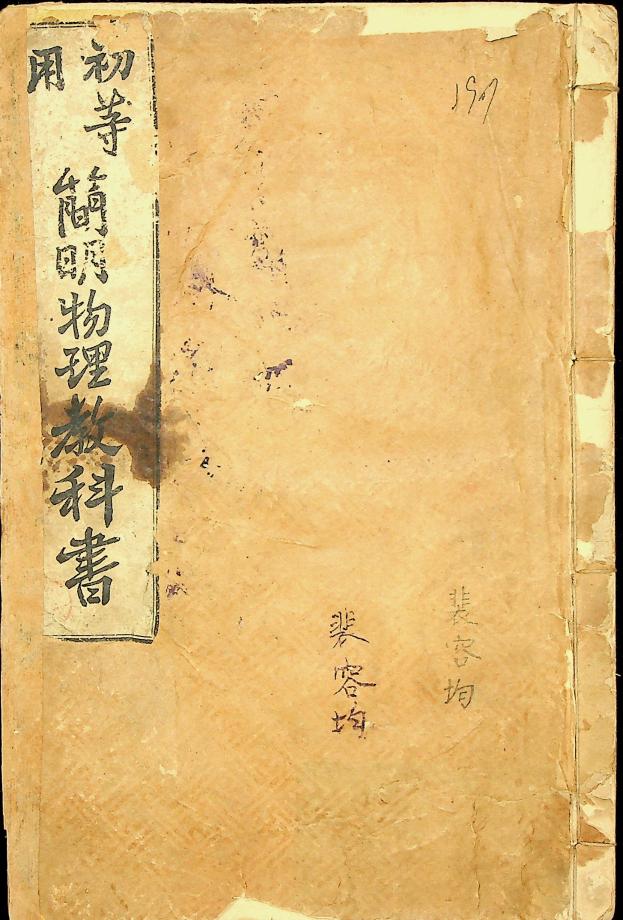 初等
用
簡明物理教科書
裴容均
裴容均